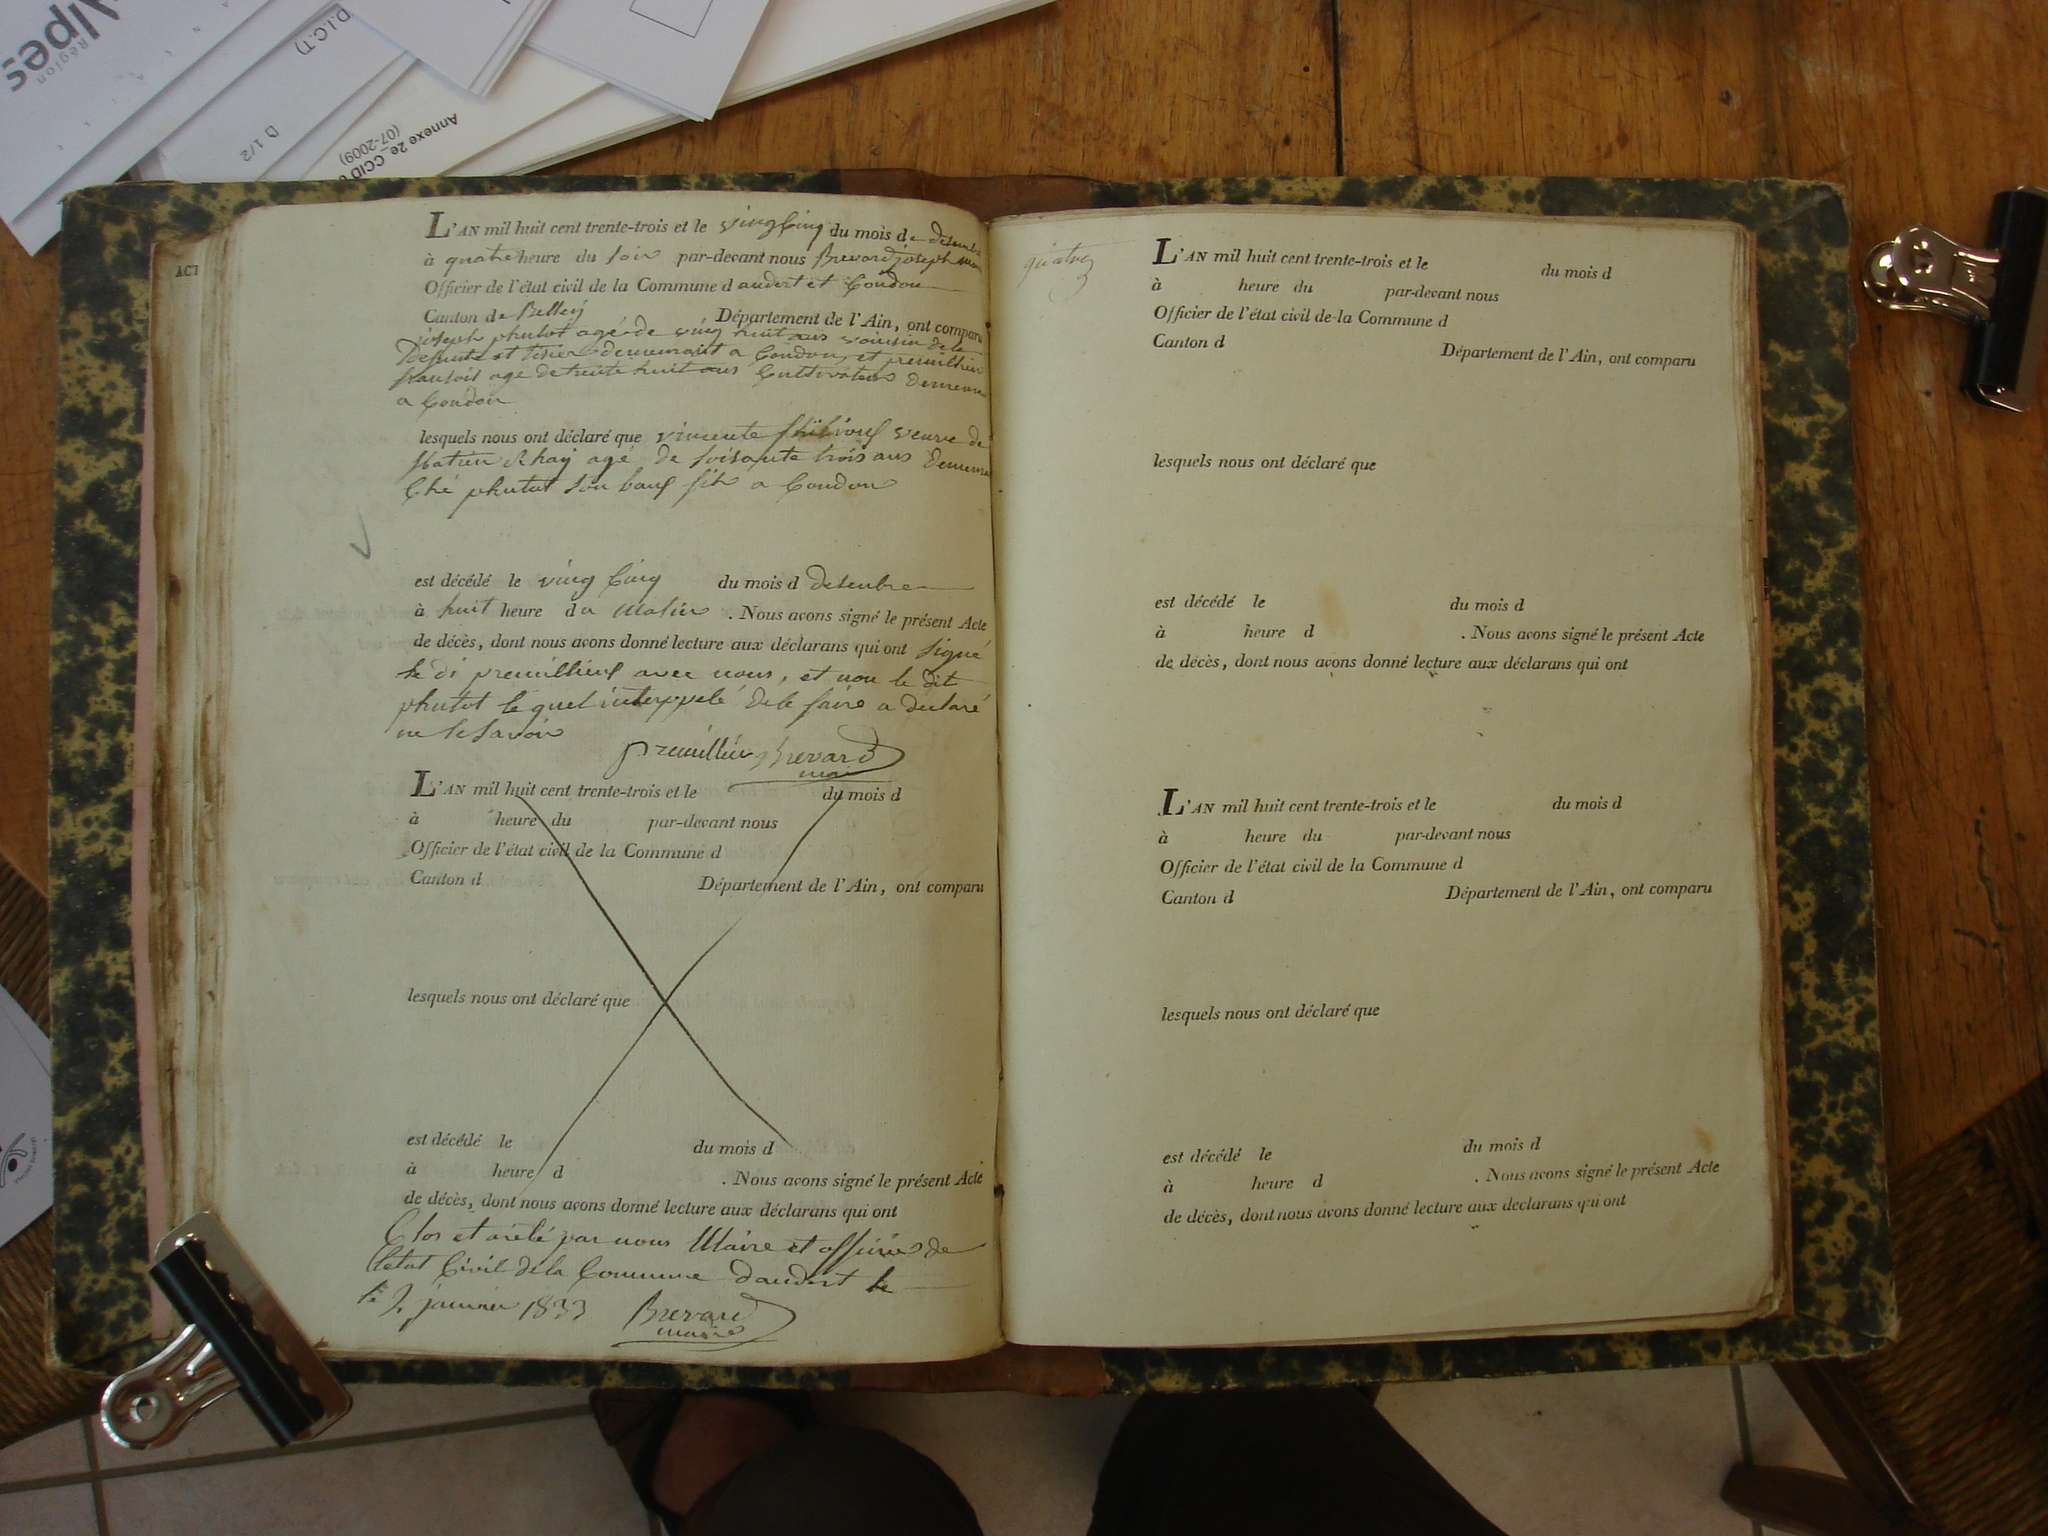 Alpes
Région
D.I.C.T)
D 1/2
Annexe 2e_CCID
(07-2009)
ACT
L'AN mil huit cent trente-trois et le vingt cinq du mois de desenbre
à quatre heure du soir par-devant nous Brevard joseph
Officier de l'état civil de la Commune d audert et Condon
Canton de Belley Département de l'Ain, ont comparu
joseph phutot agé de ving huit ans voisin de la
et demeurant a Condon, et premillieu
fransois age de trente huit ans Cultivateur demeurant
a Condon
lesquels nous ont déclaré que veuve de
agé de soisante trois ans
Ché phutot son fils a Condon
est décédé le ving Cinq du mois d desenbre
à huit heure du Matin . Nous avons signé le présent Acte
de décès, dont nous avons donné lecture aux déclarans qui ont signé
le di premillieu avec nous, et non le dit
phutot le quel interppelé de le faire a déclaré
ne le savoir
premillieu Brevard
maire
L'AN mil huit cent trente-trois et le du mois d
à heure du par-devant nous
Officier de l'état civil de la Commune d
Canton d Département de l'Ain, ont comparu
lesquels nous ont déclaré que
est décédé le du mois d
à heure d . Nous avons signé le présent Acte
de décès, dont nous avons donné lecture aux déclarans qui ont
Clos et arêté par nous Maire et officier de
l'etat Civil de la Commune d'audert le
le janvier 1833 Brevard
maire
quatre
L'AN mil huit cent trente-trois et le du mois d
à heure du par-devant nous
Officier de l'état civil de la Commune d
Canton d Département de l'Ain, ont comparu
lesquels nous ont déclaré que
est décédé le du mois d
à heure d . Nous avons signé le présent Acte
de décès, dont nous avons donné lecture aux déclarans qui ont
L'AN mil huit cent trente-trois et le du mois d
à heure du par-devant nous
Officier de l'état civil de la Commune d
Canton d Département de l'Ain, ont comparu
lesquels nous ont déclaré que
est décédé le du mois d
à heure d . Nous avons signé le présent Acte
de décès, dont nous avons donné lecture aux déclarans qui ont